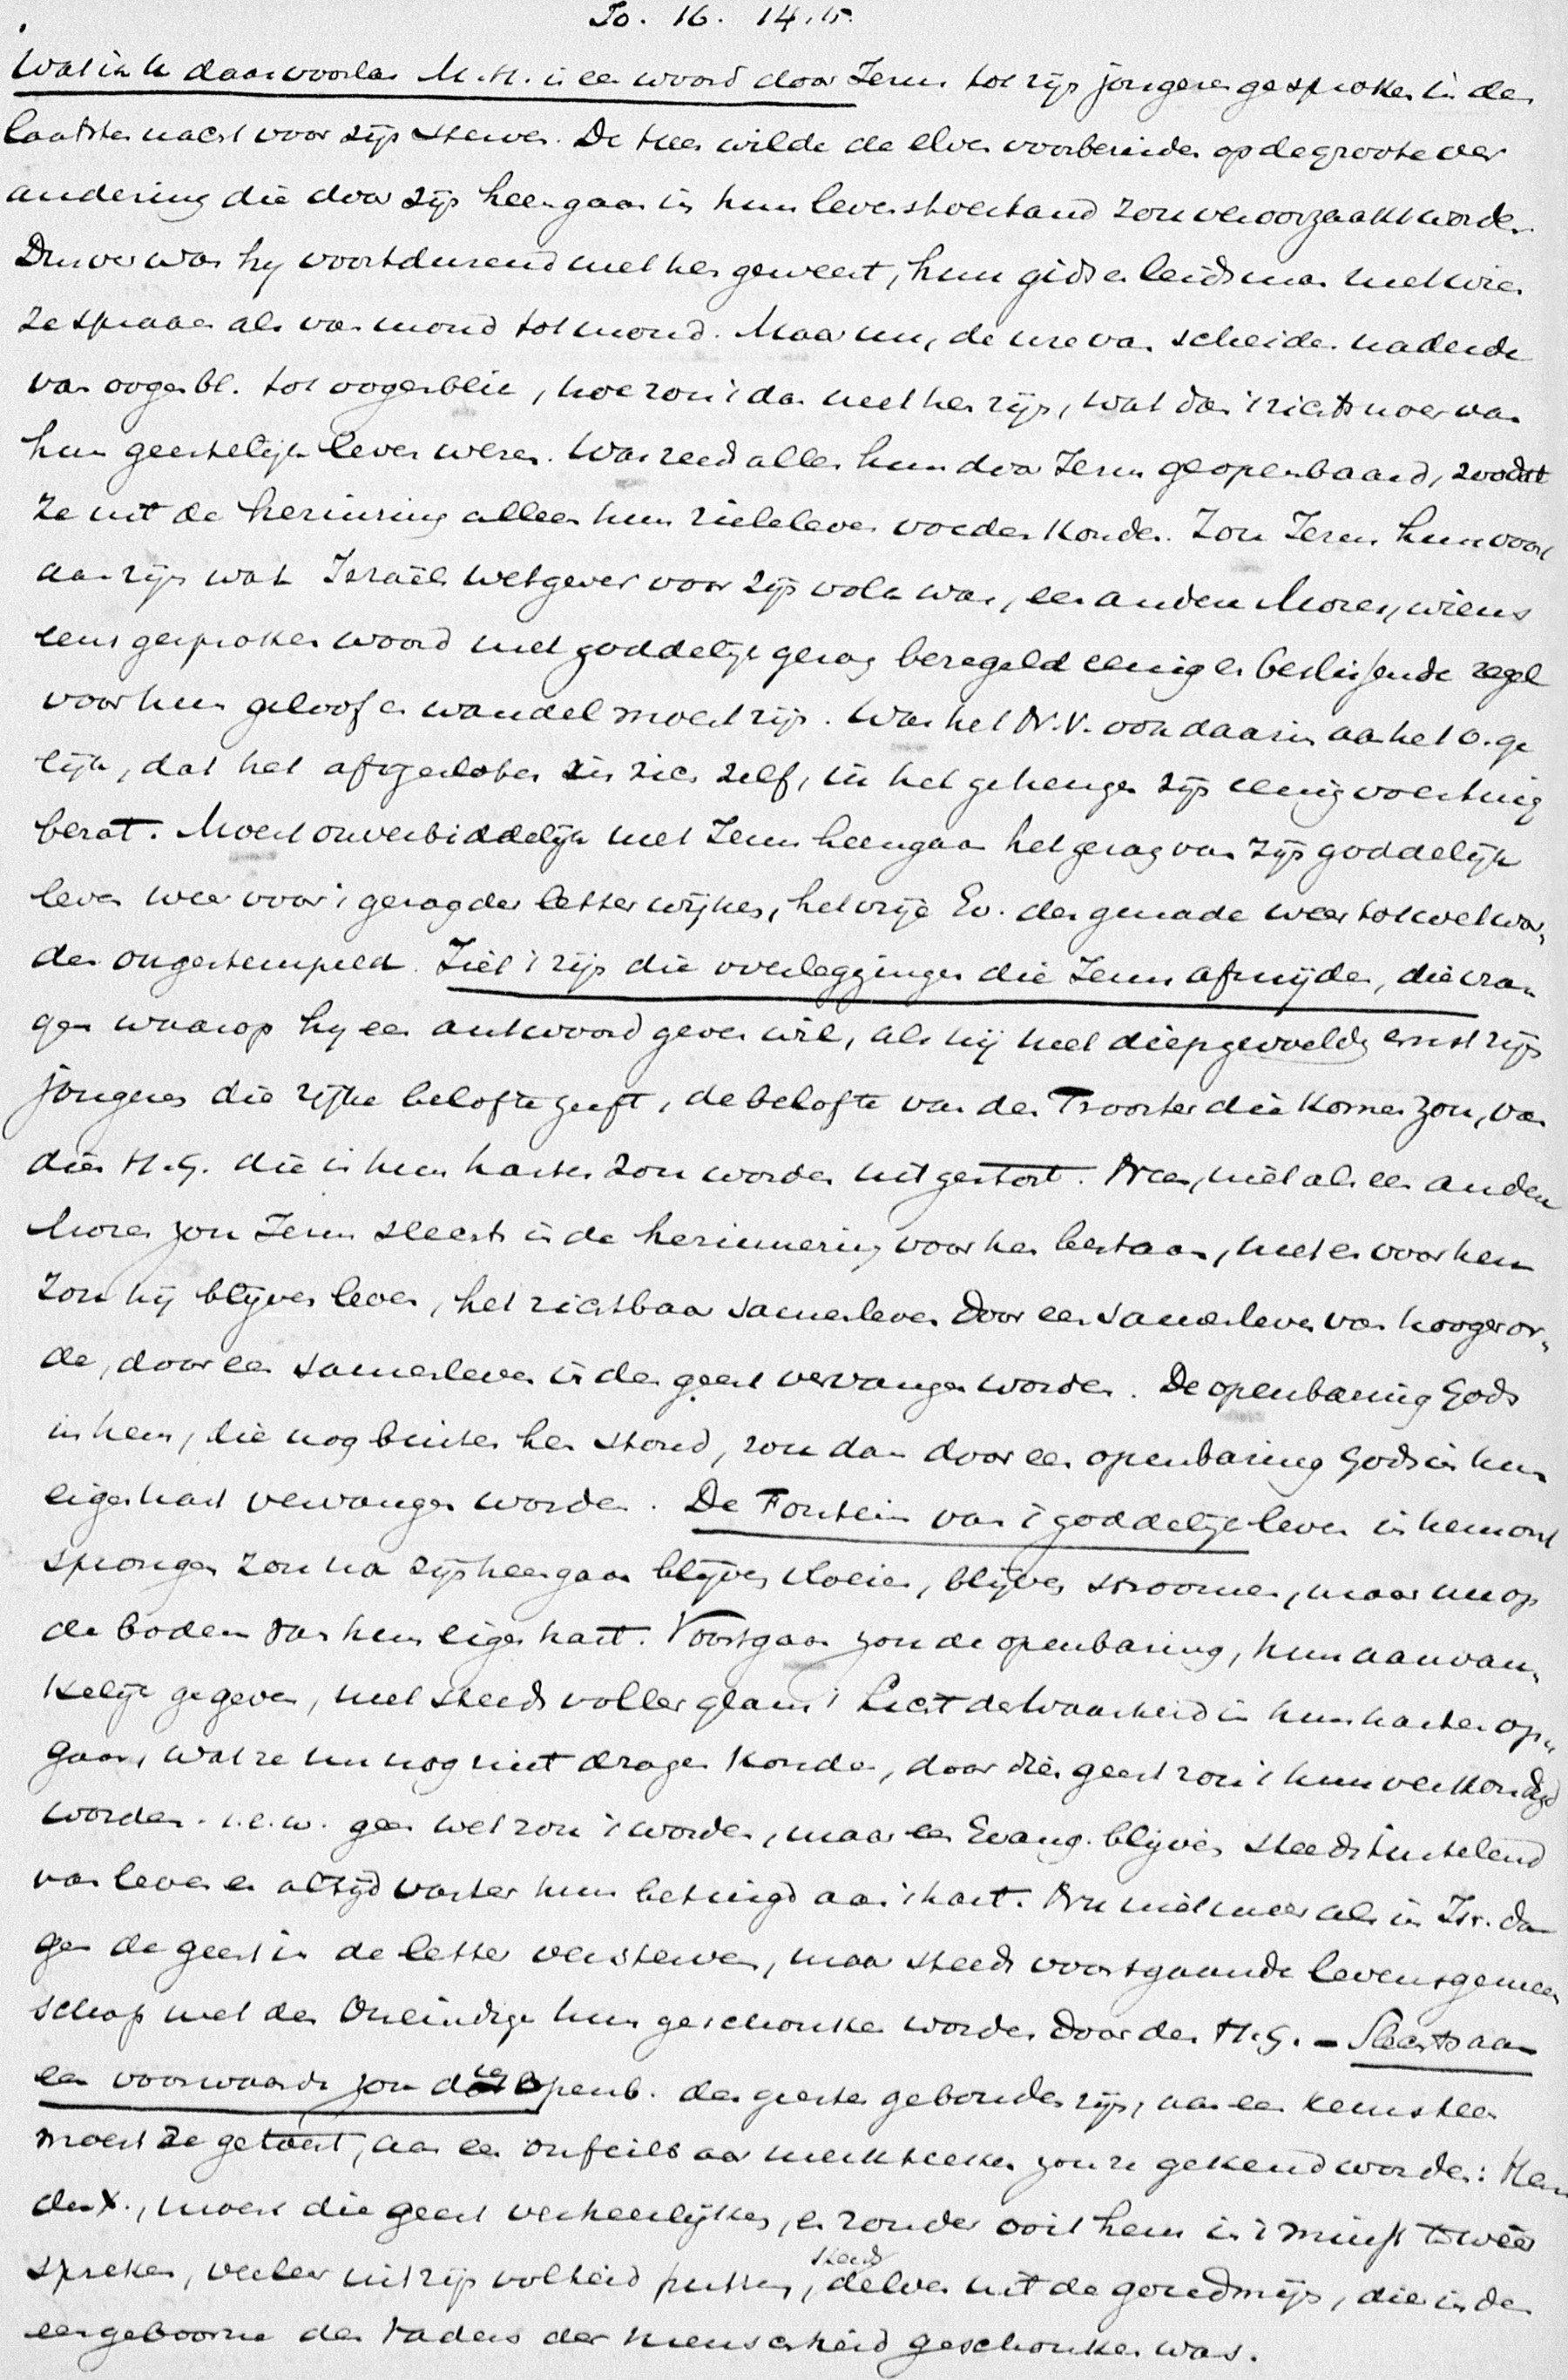 Jo. 16. 14.15.
Wat ik U daar voorlas M.H. is een woord door Jezus tot zijn jongeren gesproken in den
laatsten nacht voor zijn sterven. De Heer wilde de elven voorbereiden op de groote ver
andering die door zijn heengaan in hun levenstoestand zou veroorzaakt worden.
Dusver was hij voortdurend met hen geweest, hun gids en leidsman met wien
ze spraken als van mond tot mond. Maar nu, de ure van scheiden naderde
van oogenbl. tot oogenblik, hoe zou 't dan met hen zijn, wat dan 't richtsnoer van
hun geestelijk leven wezen. Was reeds alles hun door Jezus geopenbaard, zoodat
ze uit de herinring alleen hun zieleleven voeden konden. Zou Jezus hun voort
aan zijn wat Israëls wetgever voor zijn volk was, een anderen Mozes, wiens
eens gesproken woord met goddelijk gezag bezegeld eenig en beslissende regel
voor hun geloof en wandel moest zijn. Was het N.V. ook daarin aan het O. ge
lijk, dat het afgesloten in zich zelf, in het geheugen zijn eenig voertuig
bezat. Moest onverbiddelijk met Jezus heengaan het gezag van zijn goddelijk
leven weer voor 't gezag der letter wijken, het vrije Ev. der genade weer tot wet wor-
den omgestempeld. Ziet 't zijn die overleggingen die Jezus afsnijden, die vra-
gen waarop hij een antwoord geven wil, als hij met diepgevoelden ernst zijn
jongeren die rijke belofte geeft, de belofte van den Trooster die komen zou, van
dien H.G. die in hun harten zou worden uitgestort. Neen, niet als een anderen
Mozes zou Jezus slechts in de herinnering voor hen bestaan, met en voor hen
zou hij blijven leven, het zichtbaar samenleven door een samenleven van hooger or-
de, door een samenleven in den geest vervangen worden. De openbaring Gods
in hem, die nog buiten hen stond, zou dan door een openbaring Gods in hun
eigen hart vervangen worden. De Fontein van 't goddelijk leven in hem ont
sprongen zou na zijn heengaan blijven vloeien, blijven stroomen, maar nu op
de bodem van hun eigen hart. Voortgaan zou de openbaring, hun aanvan-
kelijk gegeven, met steeds voller glans 't Licht der Waarheid in hun harten op-
gaan, wat ze nu nog niet dragen konden, door dien geest zou 't hun verkondigd
worden. i.e.w. geen wet zou 't worden, maar een Evang. blijven steeds tintelend
van leven en altijd vaster hun betuigd aan 't hart. Nu niet meer als in Isr. da
gen de geest in de letter versterven, maar steeds voortgaande levensgemeen
schap met den Oneindige hun geschonken worden door den H.G. – Slechts aan
een voorwaarde zou de openb. des geestes gebonden zijn, aan een kenmerk
moest ze getoetst, aan een onfeilbaar merkteeken zou ze gekend worden: Hem
den X., moest die geest verheerlijken, en zonder ooit hem in 't minst te weer
spreken, veeleer uit zijn volheid putten, steeds delven uit de goudmijn, die in den
eengeboorne des Vaders der menschheid geschonken was.